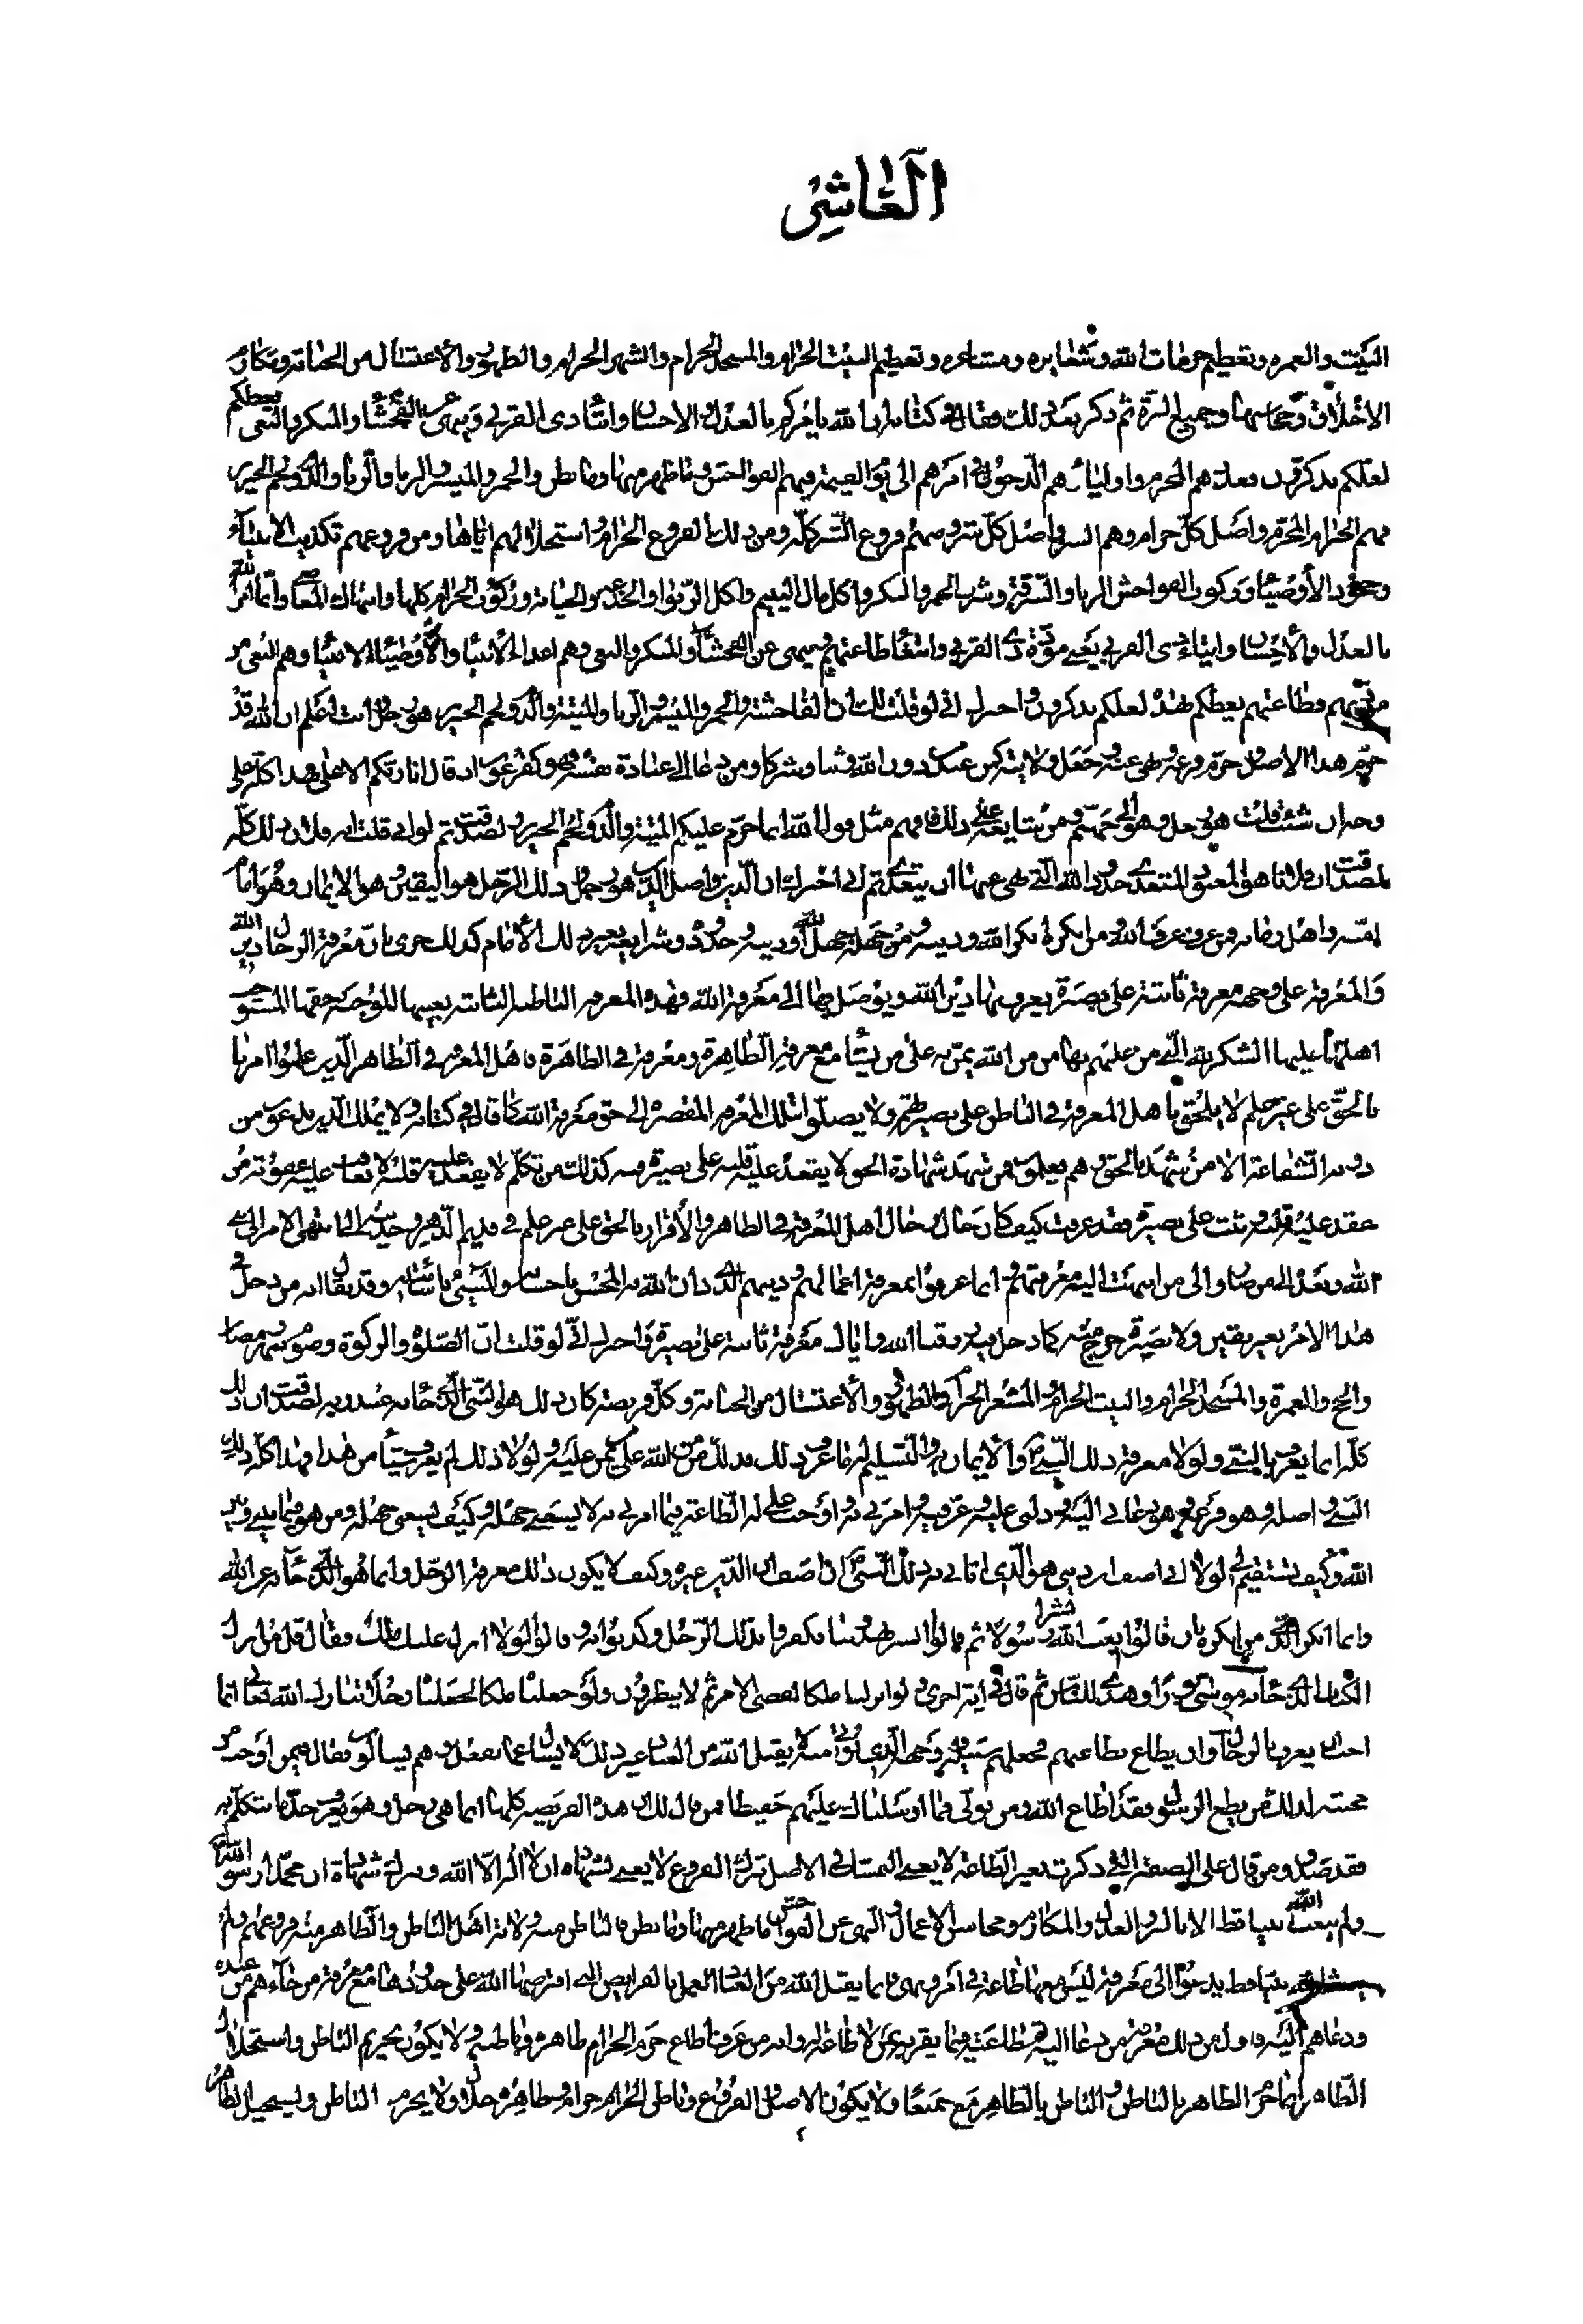 العاشر
البيت والعمره وتعظيم حرمات الله وشعايره ومشاعره وتعظيم البيت الحرام والمسجد الحرام والشهر الحرام والطهور والاغتسال من الجنابة ومكارم
الاخلاق ومحاسنها وجميع البر ثم ذكر بعد ذلك فقال في كتابه ان الله يامركم بالعدل والاحسان وايتاء ذى القربى وينهى عن الفحشاء والمنكر والبغى يعظكم
لعلكم تذكرون فعدوهم هم المحرم واولياؤهم الدخول في امرهم الى يوم القيمة فهم الفواحش ما ظهر منها وما بطن والخمر والميسر والربا والدم ولحم الخنزير
فهم الحرام المحرم واصل كل حرام وهم الشر واصل كل شر ومنهم فروع الشر كله ومن ذلك الفروع الحرام واستحلالهم اياها ومن فروعهم تكذيب الانبياء
وجحود الاوصياء وركوب الفواحش الزنا والسرقة وشرب الخمر والمسكر واكل مال اليتيم واكل الربوا والخدعة والخيانة وركوب الحرام كلها وانتهاك المعاصى وانما امر الله
بالعدل والاحسان وايتاء ذى القربى يعنى مودة ذى القربى وابتغاء طاعتهم وينهى عن الفحشاء والمنكر والبغى وهم اعداء الانبياء والاوصياء الانبياء وهم البغى من
مودتهم فطاعتهم يعظكم بهذه لعلكم تذكرون واخبرك انى لو قلت لك ان الفاحشة والخمر والميسر والزنا والميتة والدم ولحم الخنزير هو رجل وانت اعلم ان الله قد
حرم هذا الاصل وحرم فرعه ونهى عنه وجعل ولايته كمن عبد من دون الله وثنا وشركا ومن دعا الى عبادة نفسه فهو كفرعون اذ قال انا ربكم الاعلى فهذا كله على
وجه ان شئت قلت هو رجل وهو الى جهنم ومن شايعه على ذلك فافهم مثل قول الله انما حرم عليكم الميتة والدم ولحم الخنزير لصدقت ثم لو انى قلت انه فلان ذلك كله
لصدقت ان فلانا هو المعبود المتعدى حدود الله التى نهى عنها ان يتعدى ثم انى اخبرك ان الدين واصل الدين هو رجل وذلك الرجل هو اليقين وهو الايمان وهو امام
امته واهل زمانه فمن عرفه عرف الله ومن انكره انكر الله ودينه ومن جهله جهل الله ودينه وحدوده وشرايعه بغير ذلك الامام كذلك جرى بان معرفة الرجال دين الله
والمعرفة على وجهه معرفة ثابتة على بصيرة يعرف بها دين الله ويوصل بها الى معرفة الله فهذه المعرفة الباطنة الثابتة بعينها الموجبة حقها المستوجب
اهلها عليها الشكر لله التى من عليهم بها من من الله يمن به على من يشاء مع معرفة الظاهرة ومعرفة في الظاهرة فاهل المعرفة في الظاهر الذين علموا امرنا
بالحق على غير علم لا يلحق باهل المعرفة في الباطن على بصيرتهم ولا يصلوا بتلك المعرفة المقصرة الى حق معرفة الله كما قال في كتابه ولا يملك الذين يدعون من
دونه الشفاعة الا من شهد بالحق وهم يعلمون فمن شهد شهادة الحق لا يعقد عليه قلبه على بصيرة فيه كذلك من تكلم لا يعقد عليه قلبه لا يعاقب عليه عقوبة من
عقد عليه قلبه وثبت على بصيرة فقد عرفت كيف كان حال رجال اهل المعرفة في الظاهر والاقرار بالحق على غير علم في قديم الدهر وحديثه الى ان انتهى الامر الى نبى
الله وبعده الى من صار والى من انتهت اليه معرفتهم وانما عرفوا بمعرفة اعمالهم ودينهم الذى دان الله به المحسن باحسانه والمسىء باسائته وقد يقال انه من دخل في
هذا الامر بغير يقين ولا بصيرة خرج منه كما دخل فيه رزقنا الله واياك معرفة ثابتة على بصيرة واخبرك انى لو قلت ان الصلوة والزكوة وصوم شهر رمضان
والحج والعمرة والمسجد الحرام والبيت الحرام والمشعر الحرام والطهور والاغتسال من الجنابة وكل فريضة كان ذلك هو النبى الذى جاء به من عند ربه لصدقت ان ذلك
كله انما يعرف بالنبى ولولا معرفة ذلك النبى والايمان به والتسليم له ما عرف ذلك فذلك من من الله على من يمن عليه ولولا ذلك لم يعرف شيئا من هذا فهذا كله ذلك
النبى واصله وهو فرعه وهو دعانى اليه ودلنى عليه وعرفنيه وامرنى به واوجب على له الطاعة فيما امرنى به لا يسعنى جهله وكيف يسعنى جهله ومن هو فيما بينى وبين
الله وكيف يستقيم لى لولا انى اصف ان دينى هو الذى اتانى به ذلك النبى ان اصف ان الدين غيره وكيف لا يكون ذلك معرفة الرجل وانما هو الذى جاء به عن الله
وانما انكر الذى من انكره بان قالوا ابعث الله بشرا رسولا ثم قالوا ابشر يهدوننا فكفروا بذلك الرجل وكذبوا به وقالوا لولا انزل عليه ملك فقال قل من انزل
الكتاب الذى جاء به موسى نورا وهدى للناس ثم قال في اية اخرى ولو انزلنا ملكا لقضى الامر ثم لا ينظرون ولو جعلناه ملكا لجعلناه رجلا تبارك الله تعالى انما
احب ان يعرف بالرجال وان يطاع بطاعتهم فجعلهم سبيله ووجهه الذى يؤتى منه لا يقبل الله من العباد غير ذلك لا يسال عما يفعل وهم يسالون فقال فيمن اوجب
محبته لذلك من يطع الرسول فقد اطاع الله ومن تولى فما ارسلناك عليهم حفيظا فمن قال لك ان هذه الفريضة كلها انما هى رجل وهو يعرف حد ما يتكلم به
فقد صدق ومن قال على الصفة التى ذكرت بغير الطاعة لا يغنى التمسك في الاصل بترك الفروع لا يغنى شهادة ان لا اله الا الله وبترك شهادة ان محمدا رسول الله
ولم يبعث الله نبيا قط الا بالبر والعدل والمكارم ومحاسن الاعمال والنهى عن الفواحش ما ظهر منها وما بطن فالباطن منه ولاية اهل الباطن والظاهر منه فروعهم ولم
نبيا قط يدعوا الى معرفة ليس معها طاعة في امر ونهى فانما يقبل الله من العباد العمل بالفرايض التى افترضها الله على حدودها مع معرفة من جاءهم من عنده
ودعاهم اليه فاول من ذلك معرفة من دعا اليه ثم طاعته فيما يقربه بمن لا طاعة له وانه من عرف اطاع حرم الحرام ظاهره وباطنه ولا يكون تحريم الباطن واستحلال
الظاهر انما حرم الظاهر بالباطن والباطن بالظاهر مع جميعا ولا يكون الاصل والفروع وباطن الحرام حرام وظاهره حلال ولا يحرم الباطن ويستحيل الظاهر